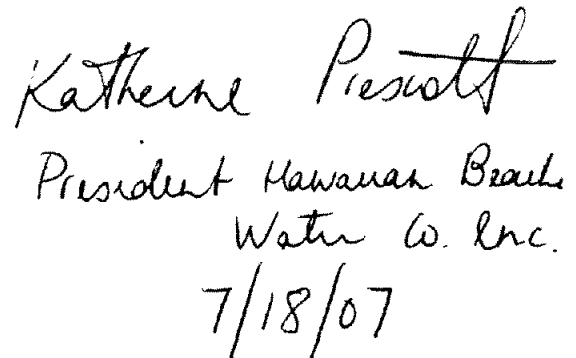 Katherine Prescott
President Hawaiian Beache
Water Co. Inc.
7/18/07